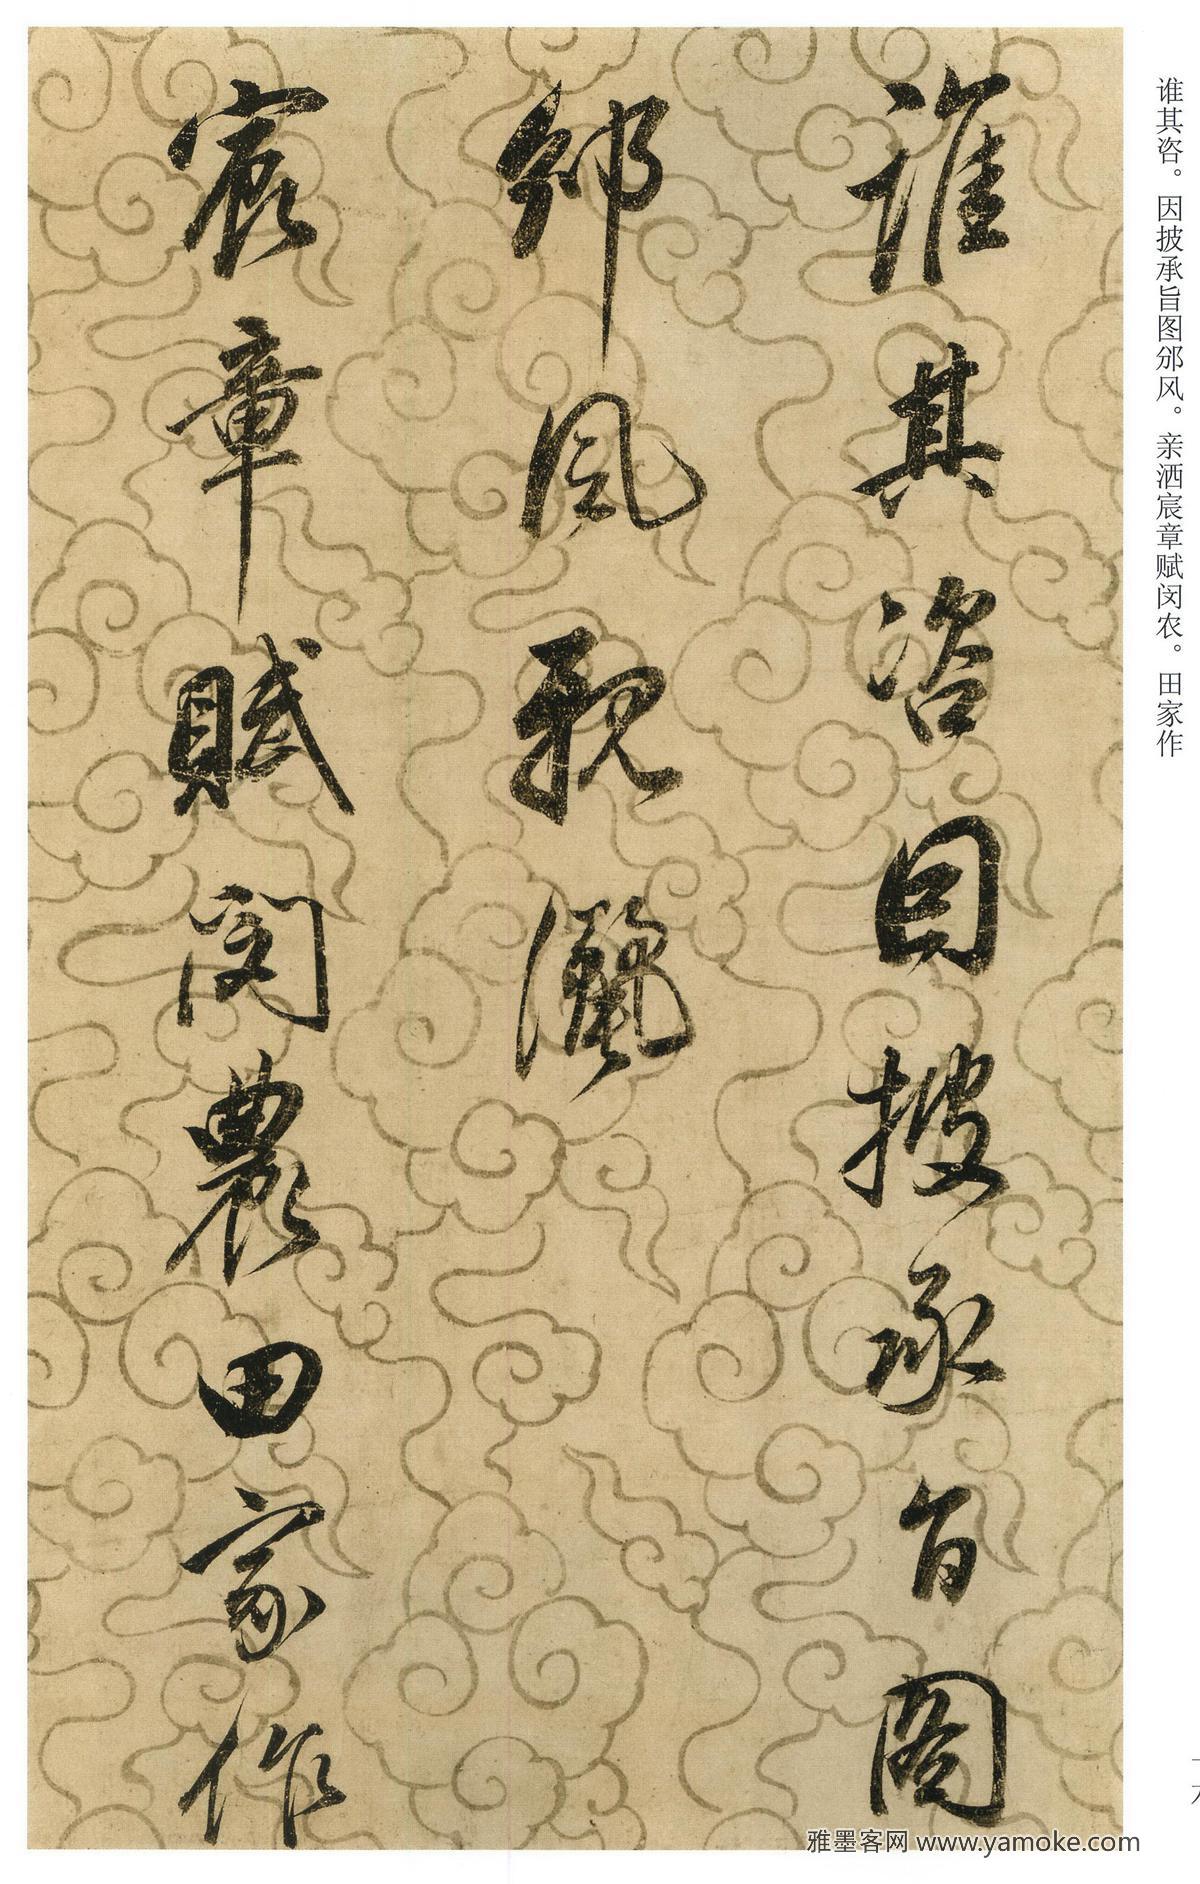 谁其咨。因披承旨图邠风。亲洒宸章赋闵农。田家作
誰其咨因披承旨圖
邠風親灑
宸章賦閔農田家作
雅墨客网 www.yamoke.com